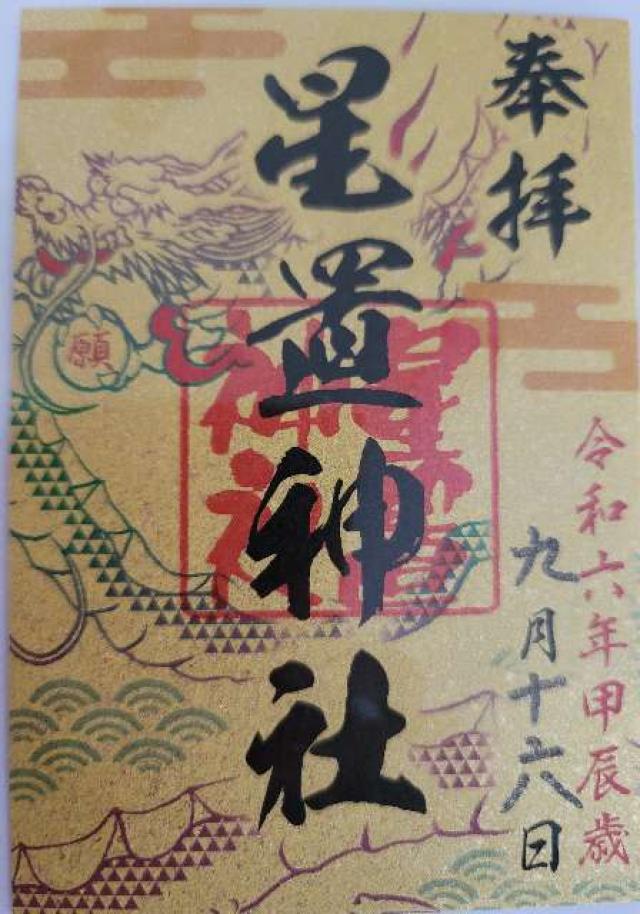 奉拝
令和六年甲辰歳
九月十六日
星置神社
星置神社
願